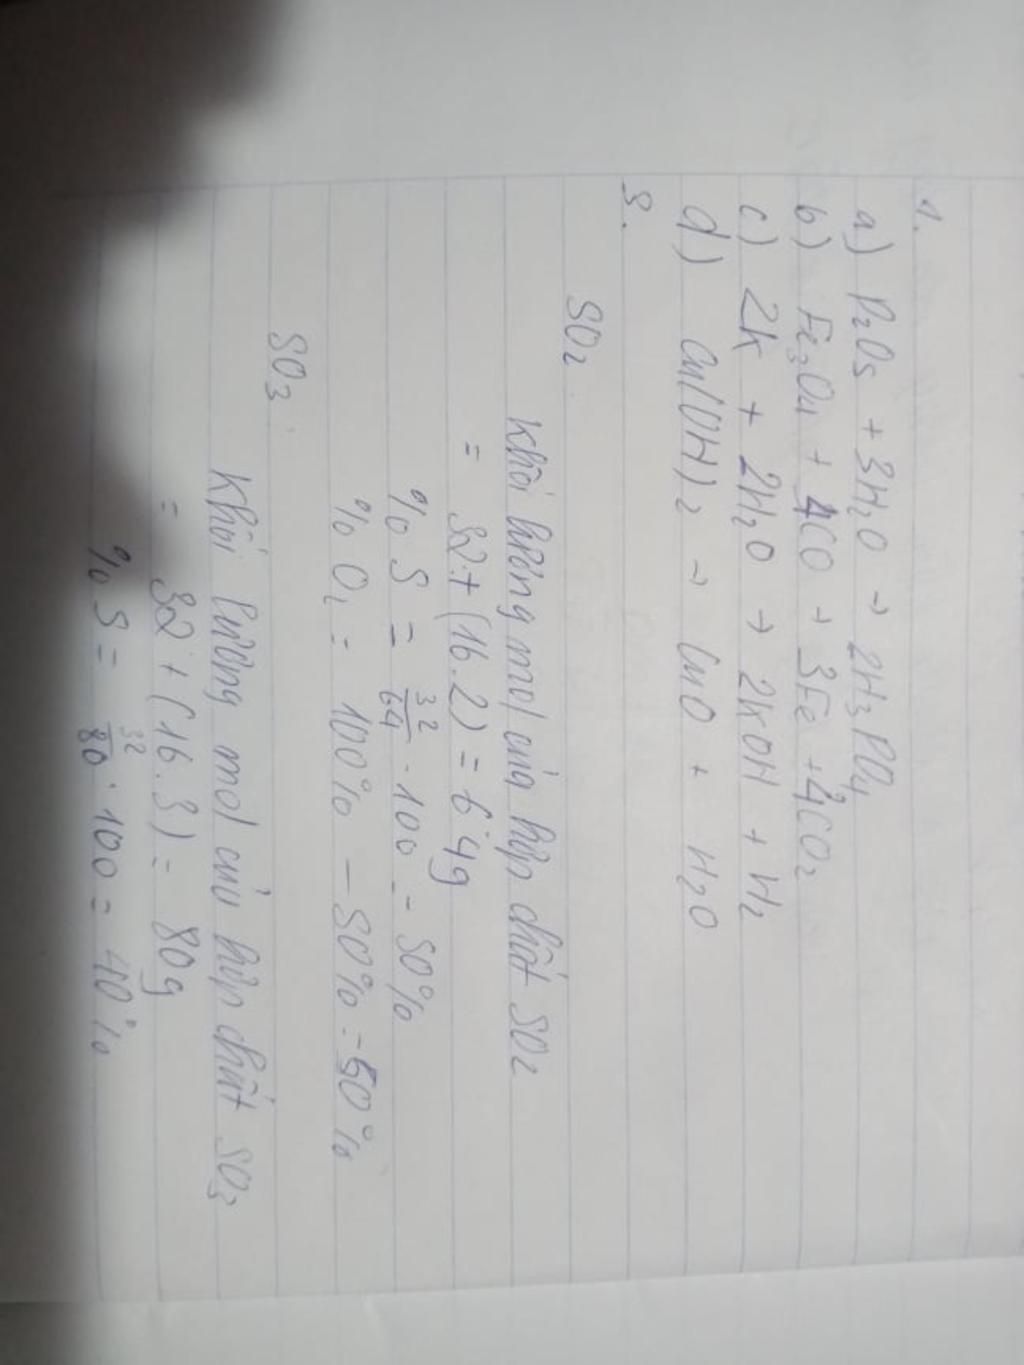 1.
a) P₂O₅ + 3H₂O → 2H₃PO₄
b) Fe₃O₄ + 4CO → 3Fe + 4CO₂
c) 2K + 2H₂O → 2KOH + H₂
d) Cu(OH)₂ → CuO + H₂O
3.
SO₂
Khối lượng mol của hợp chất SO₂
= 32 + (16.2) = 64g
% S = 32/64 . 100 = 50%
% O₂ = 100% - 50% = 50%
SO₃
Khối lượng mol của hợp chất SO₃
= 32 + (16.3) = 80g
% S = 32/80 . 100 = 40%